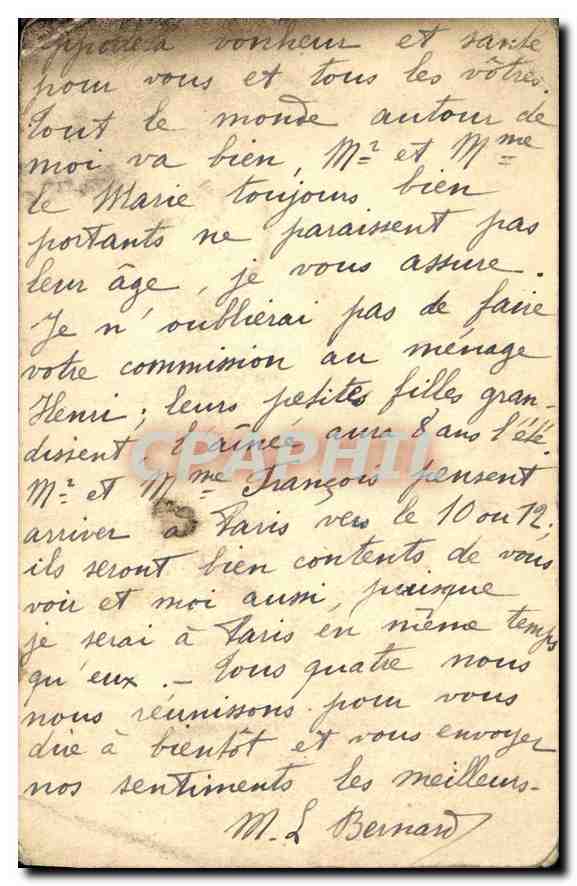 apportera bonheur et santé
pour vous et tous les vôtres.
Tout le monde autour de
moi va bien, Mr et Mme
le Marié toujours bien
portants ne paraissent pas
leur âge, je vous assure.
Je n'oublierai pas de faire
votre commission au ménage
Henri ; leurs petites filles gran-
dissent, l'aînée aura 8 ans l'été.
Mr et Mme François pensent
arriver à Paris vers le 10 ou 12,
ils seront bien contents de vous
voir et moi aussi, puisque
je serai à Paris en même temps
qu'eux. — Tous quatre nous
nous réunissons pour vous
dire à bientôt et vous envoyer
nos sentiments les meilleurs.
M. L Bernard
CPAPHIL